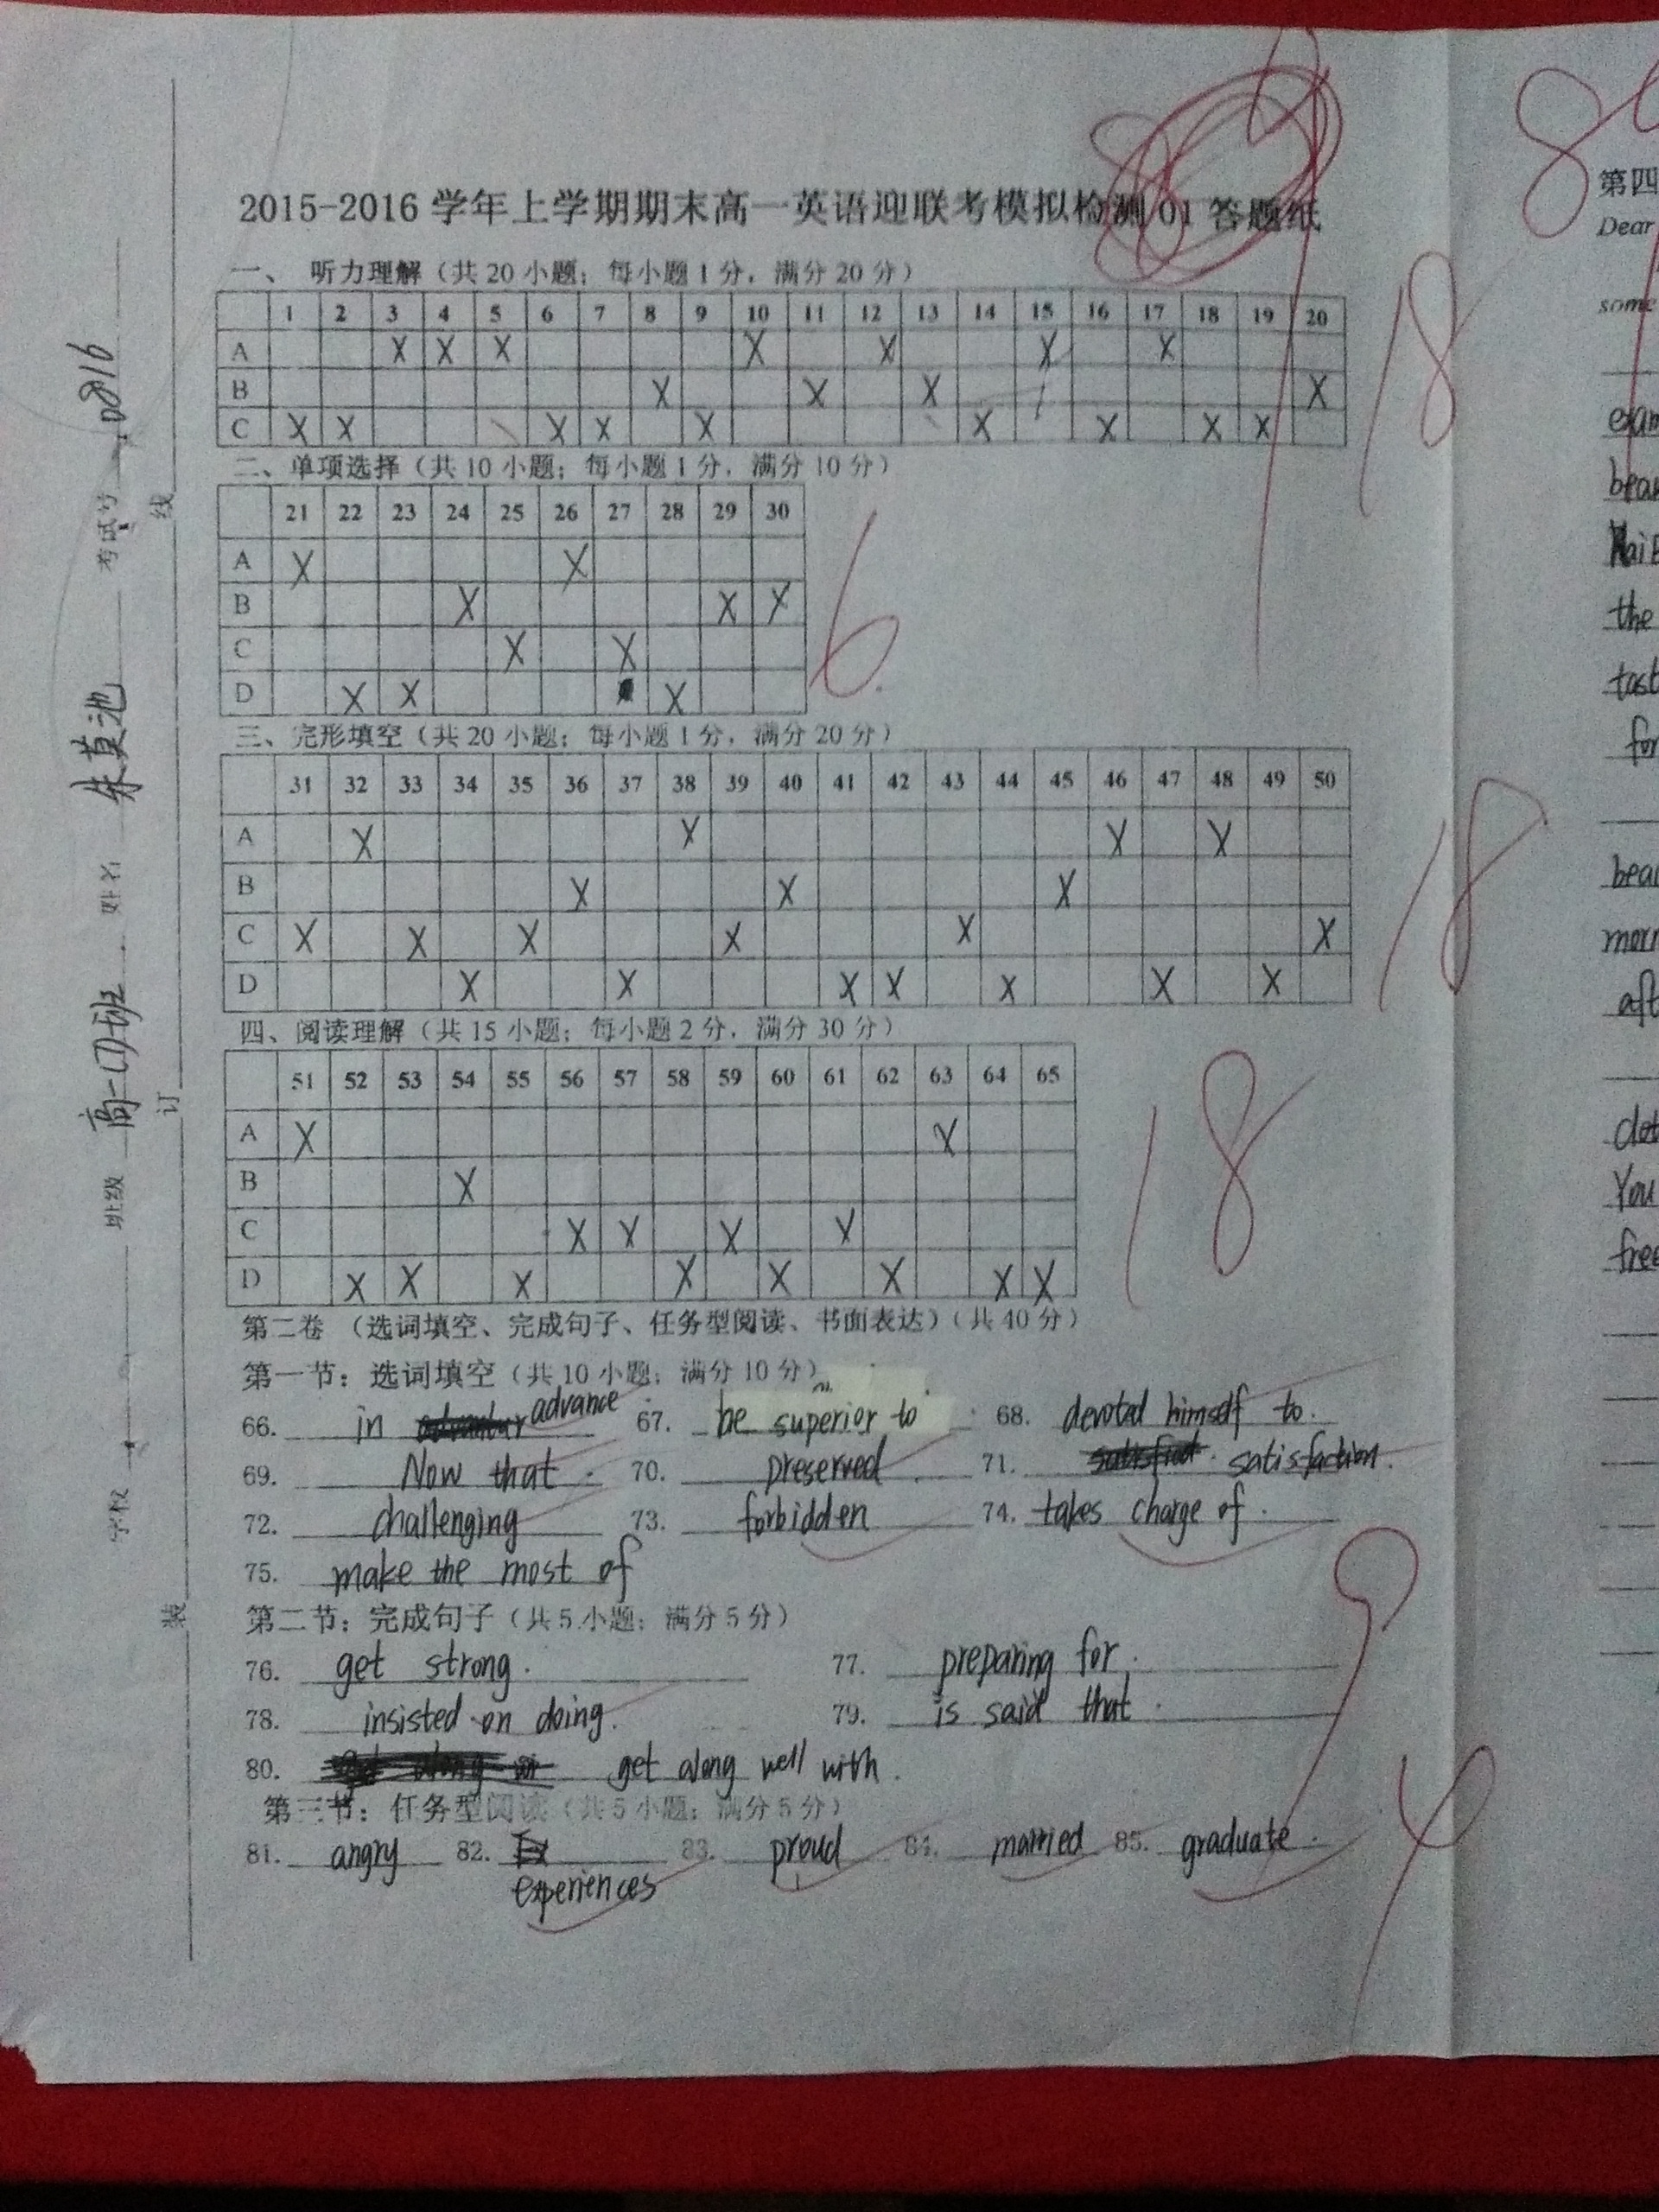 2015-2016 学年上学期期末高一英语迎联考模拟检测 01 答题纸
一、 听力理解（共 20 小题；每小题 1 分，满分 20 分）
1 2 3 4 5 6 7 8 9 10 11 12 13 14 15 16 17 18 19 20
A X X X X X X X
B X X X X
C X X X X X X X X X
18
二、单项选择（共 10 小题；每小题 1 分，满分 10 分）
21 22 23 24 25 26 27 28 29 30
A X X
B X X X
C X X
D X X X
6
三、完形填空（共 20 小题；每小题 1 分，满分 20 分）
31 32 33 34 35 36 37 38 39 40 41 42 43 44 45 46 47 48 49 50
A X X X X
B X X X
C X X X X X X
D X X X X X X X
18
四、阅读理解（共 15 小题；每小题 2 分，满分 30 分）
51 52 53 54 55 56 57 58 59 60 61 62 63 64 65
A X X
B X
C X X X X
D X X X X X X X X
18
第二卷 （选词填空、完成句子、任务型阅读、书面表达）（共 40 分）
第一节：选词填空（共 10 小题；满分 10 分）
66. in advance 67. be superior to 68. devoted himself to.
69. Now that 70. preserved 71. satisfaction.
72. challenging 73. forbidden 74. takes charge of.
75. make the most of
第二节：完成句子（共 5 小题；满分 5 分）
76. get strong. 77. preparing for.
78. insisted on doing. 79. is said that.
80. get along well with.
第三节：任务型阅读（共 5 小题；满分 5 分）
81. angry 82. experiences 83. proud 84. married 85. graduate.
9
4
学校 班级 高一(7)班 姓名 朱莫池 考试号 0816
装 订 线
第四
Dear
some
the
for
You